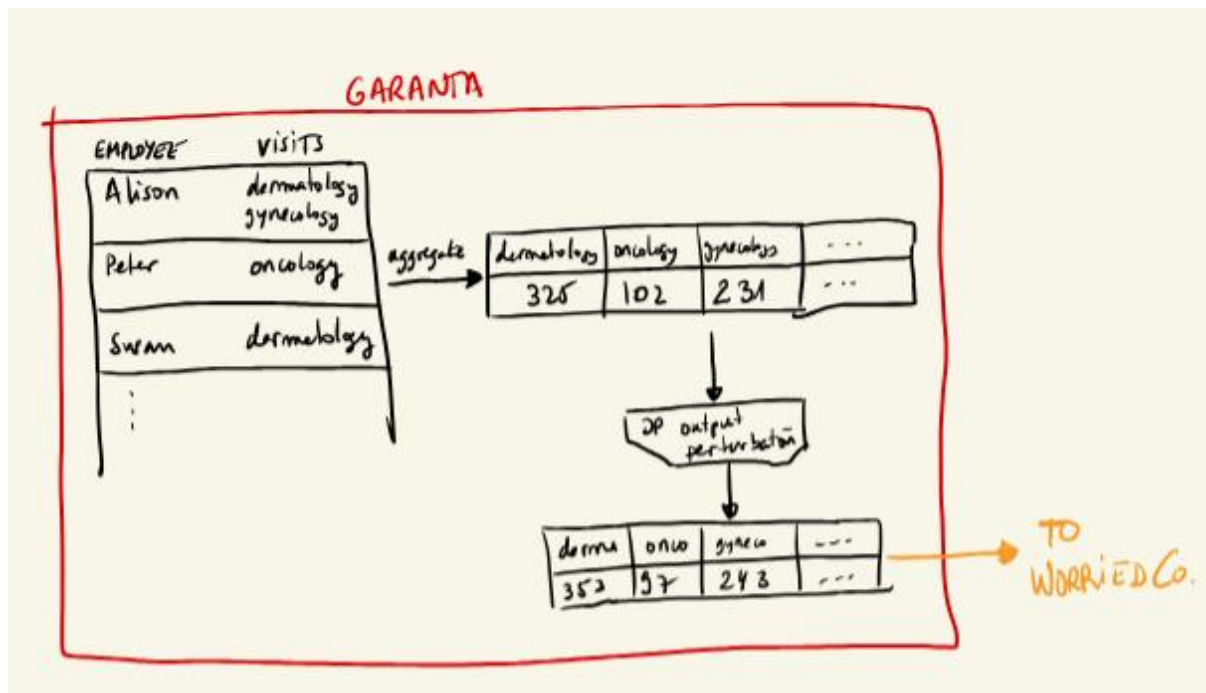 GARANTA
EMPLOYEE VISITS
Alison dermatology
gynecology
Peter oncology
Susan dermatology
aggregate
dermatology oncology gynecology ...
325 102 231 ...
DP output
perturbation
derma onco gyneco ...
352 97 243 ...
TO
WORRIED Co.